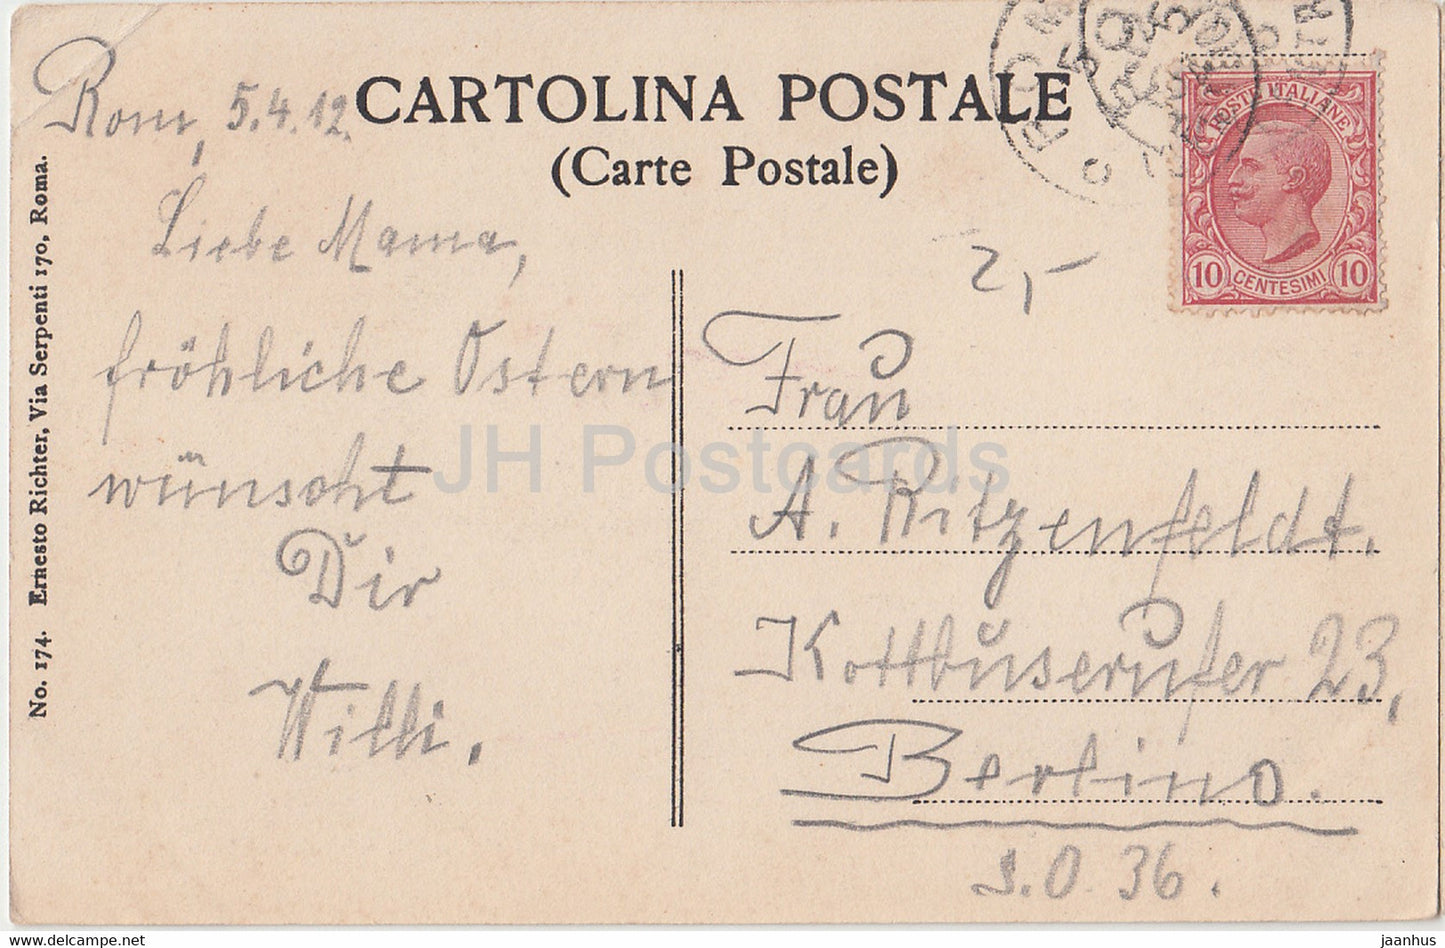 CARTOLINA POSTALE
(Carte Postale)
Rom, 5.4.12.
Liebe Mama,
fröhliche Ostern
wünscht
Dir
Willi.
2,-
POSTE ITALIANE
10 CENTESIMI 10
Frau
A. Ritzenfeldt.
Kottbuserufer 23,
Berlino.
S.O 36.
No. 174. Ernesto Richter, Via Serpenti 170, Roma.
JH Postcards
www.delcampe.net
jaanhus